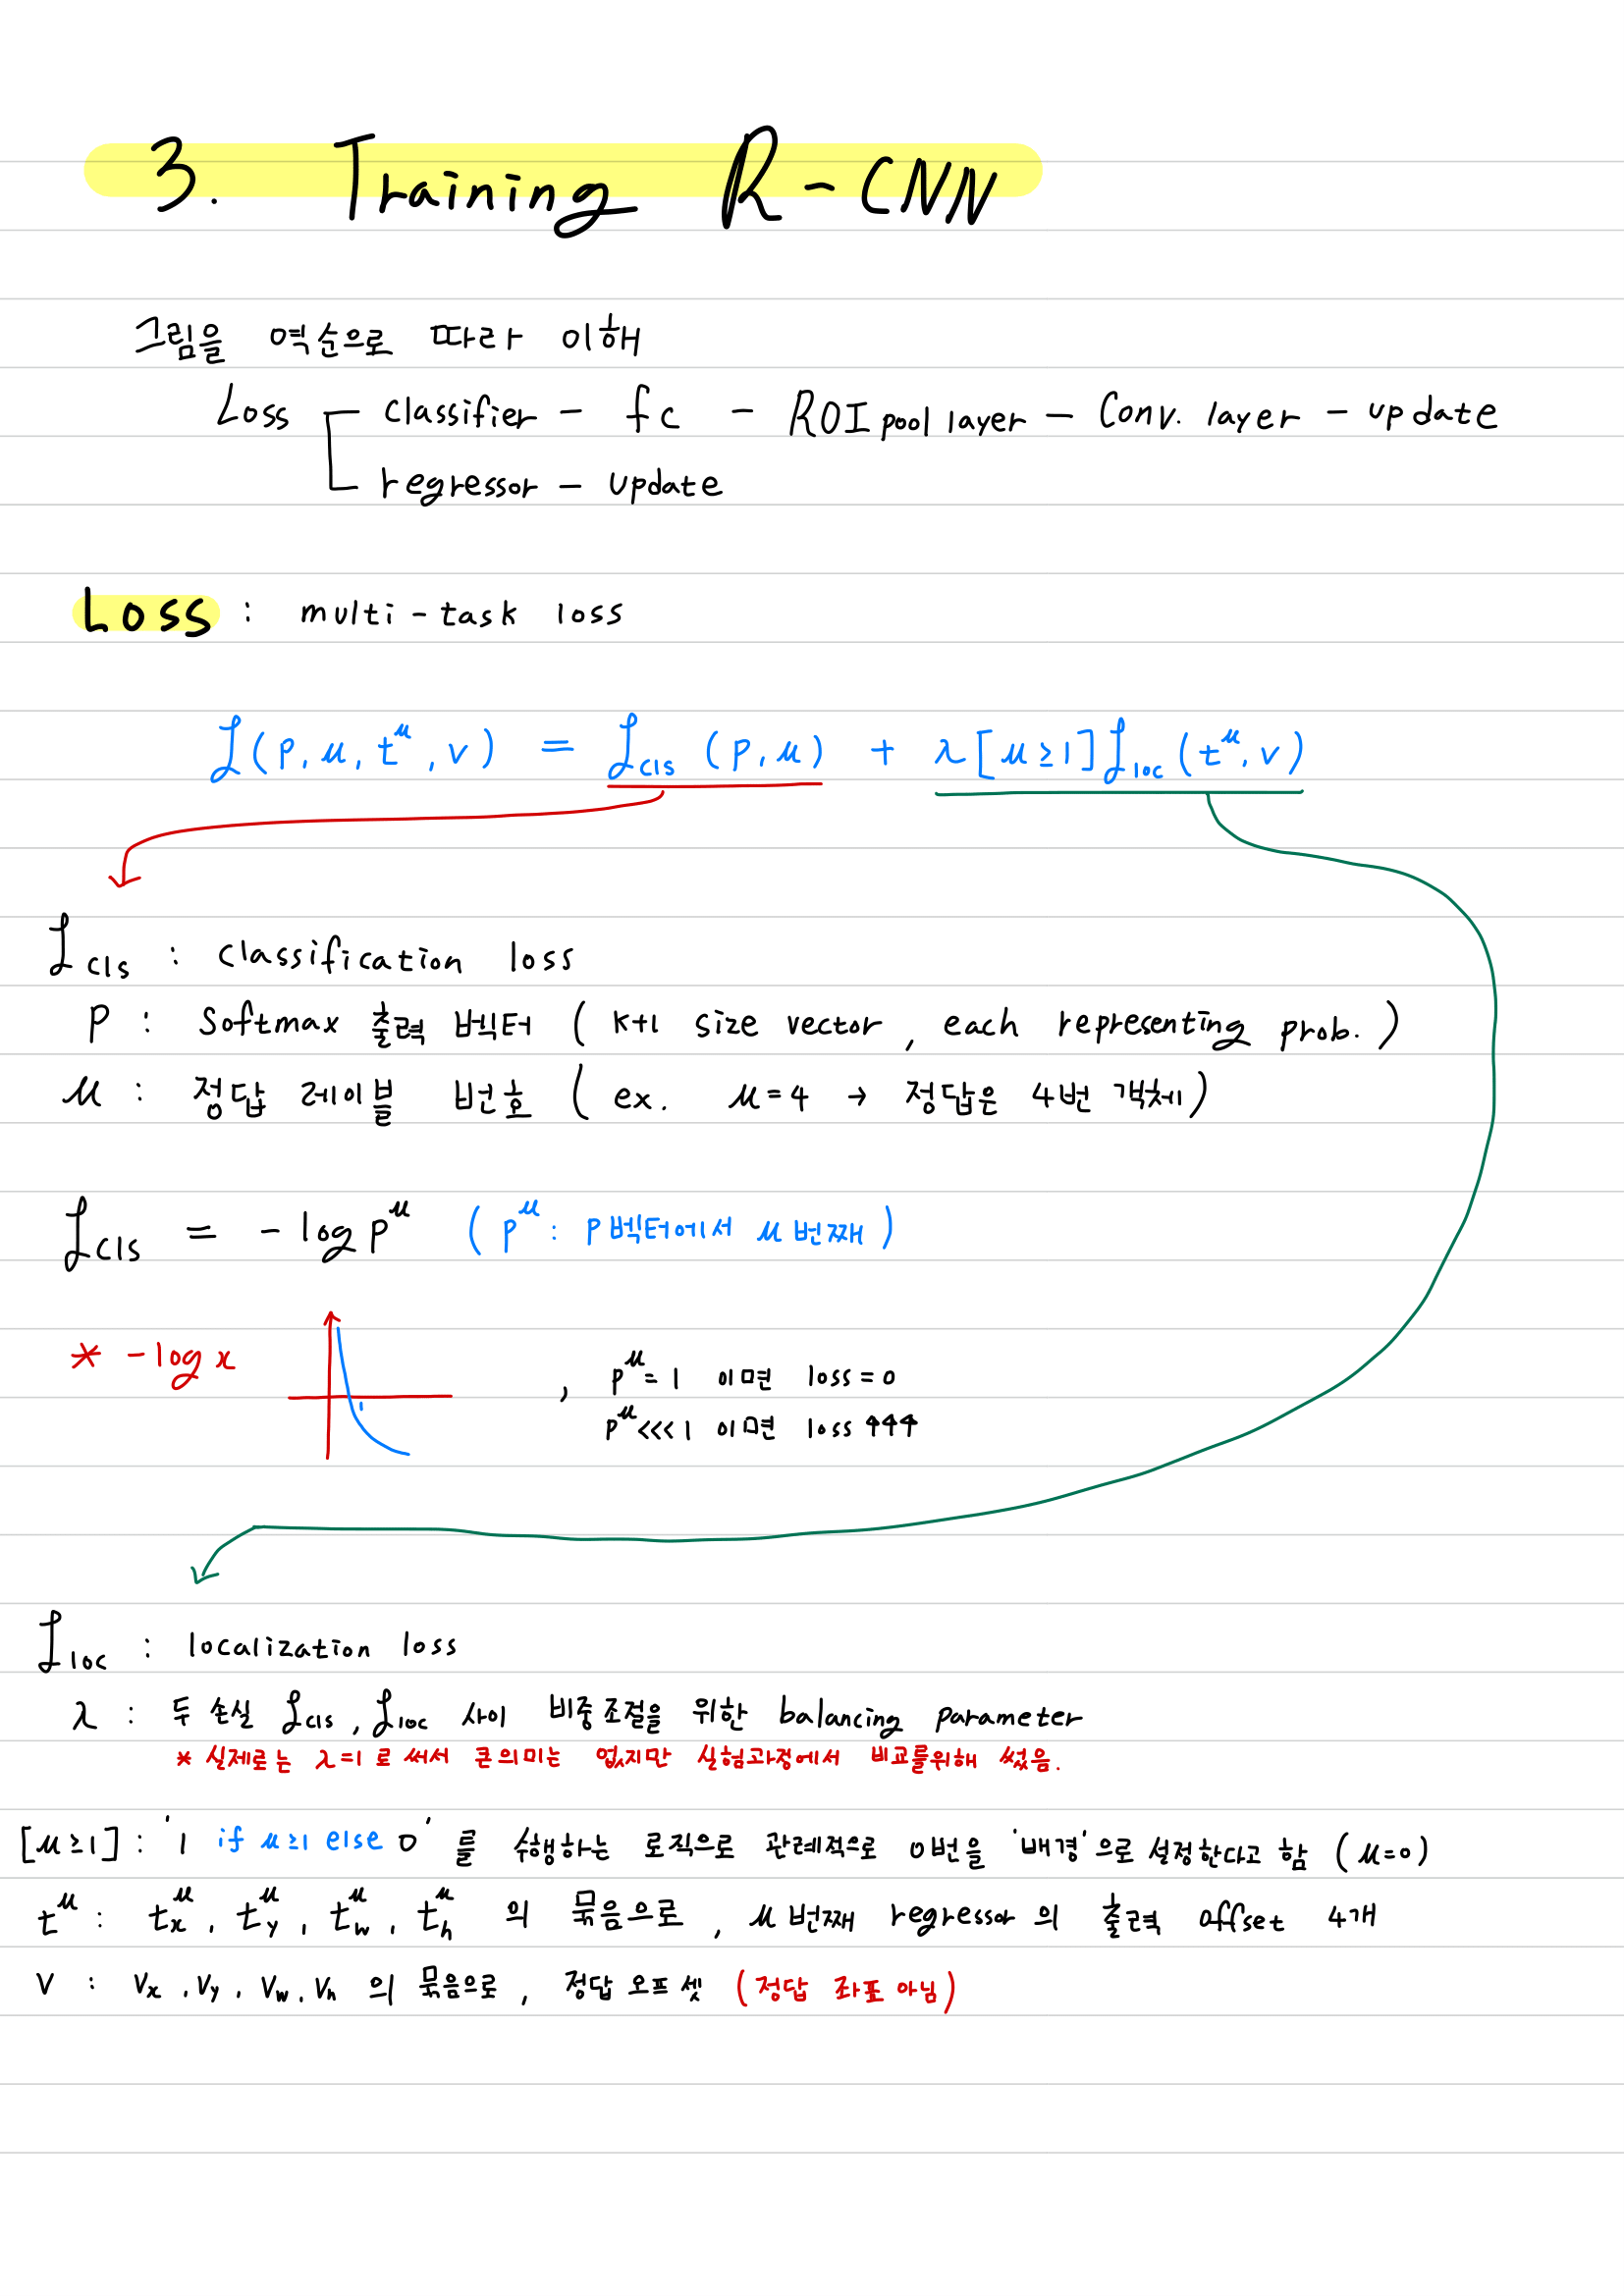 3. Training R-CNN
그림을 역순으로 따라 이해
Loss classifier - fc - ROI pool layer - Conv. layer - update
regressor - update
Loss : multi-task loss
ℒ(p, μ, t^μ, v) = ℒcls (p, μ) + λ[μ≥1]ℒloc(t^μ, v)
ℒcls : classification loss
P : Softmax 출력 벡터 ( K+1 size vector, each representing prob. )
μ : 정답 레이블 번호 ( ex. μ=4 → 정답은 4번 객체)
ℒcls = -log p^μ ( p^μ : P벡터에서 μ 번째 )
* -log x
1
, p^μ = 1 이면 loss = 0
p^μ <<< 1 이면 loss ↑↑↑
ℒloc : localization loss
λ : 두 손실 ℒcls, ℒloc 사이 비중조절을 위한 balancing parameter
* 실제로는 λ=1로 써서 큰의미는 없지만 실험과정에서 비교를위해 썼음.
[μ≥1] : '1 if μ≥1 else 0' 를 수행하는 로직으로 관례적으로 0번을 '배경'으로 설정한다고 함 (μ=0)
t^μ : t^μ_x, t^μ_y, t^μ_w, t^μ_h 의 묶음으로, μ번째 regressor의 출력 offset 4개
V : Vx, Vy, Vw, Vh 의 묶음으로, 정답 오프셋 (정답 좌표 아님)